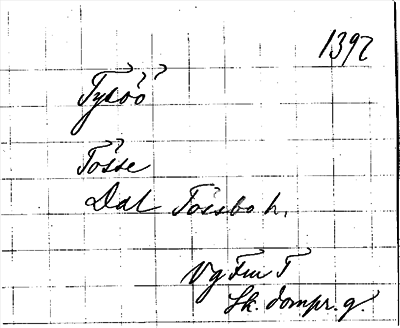 1392
Tysöö
Tösse
Dal Tössbo h.
Vg Fm T
Sk. dompr. g.